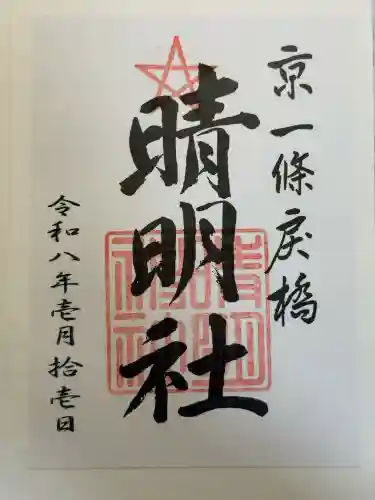 京一條戻橋
晴明社
令和八年壱月拾壱日
晴明神社